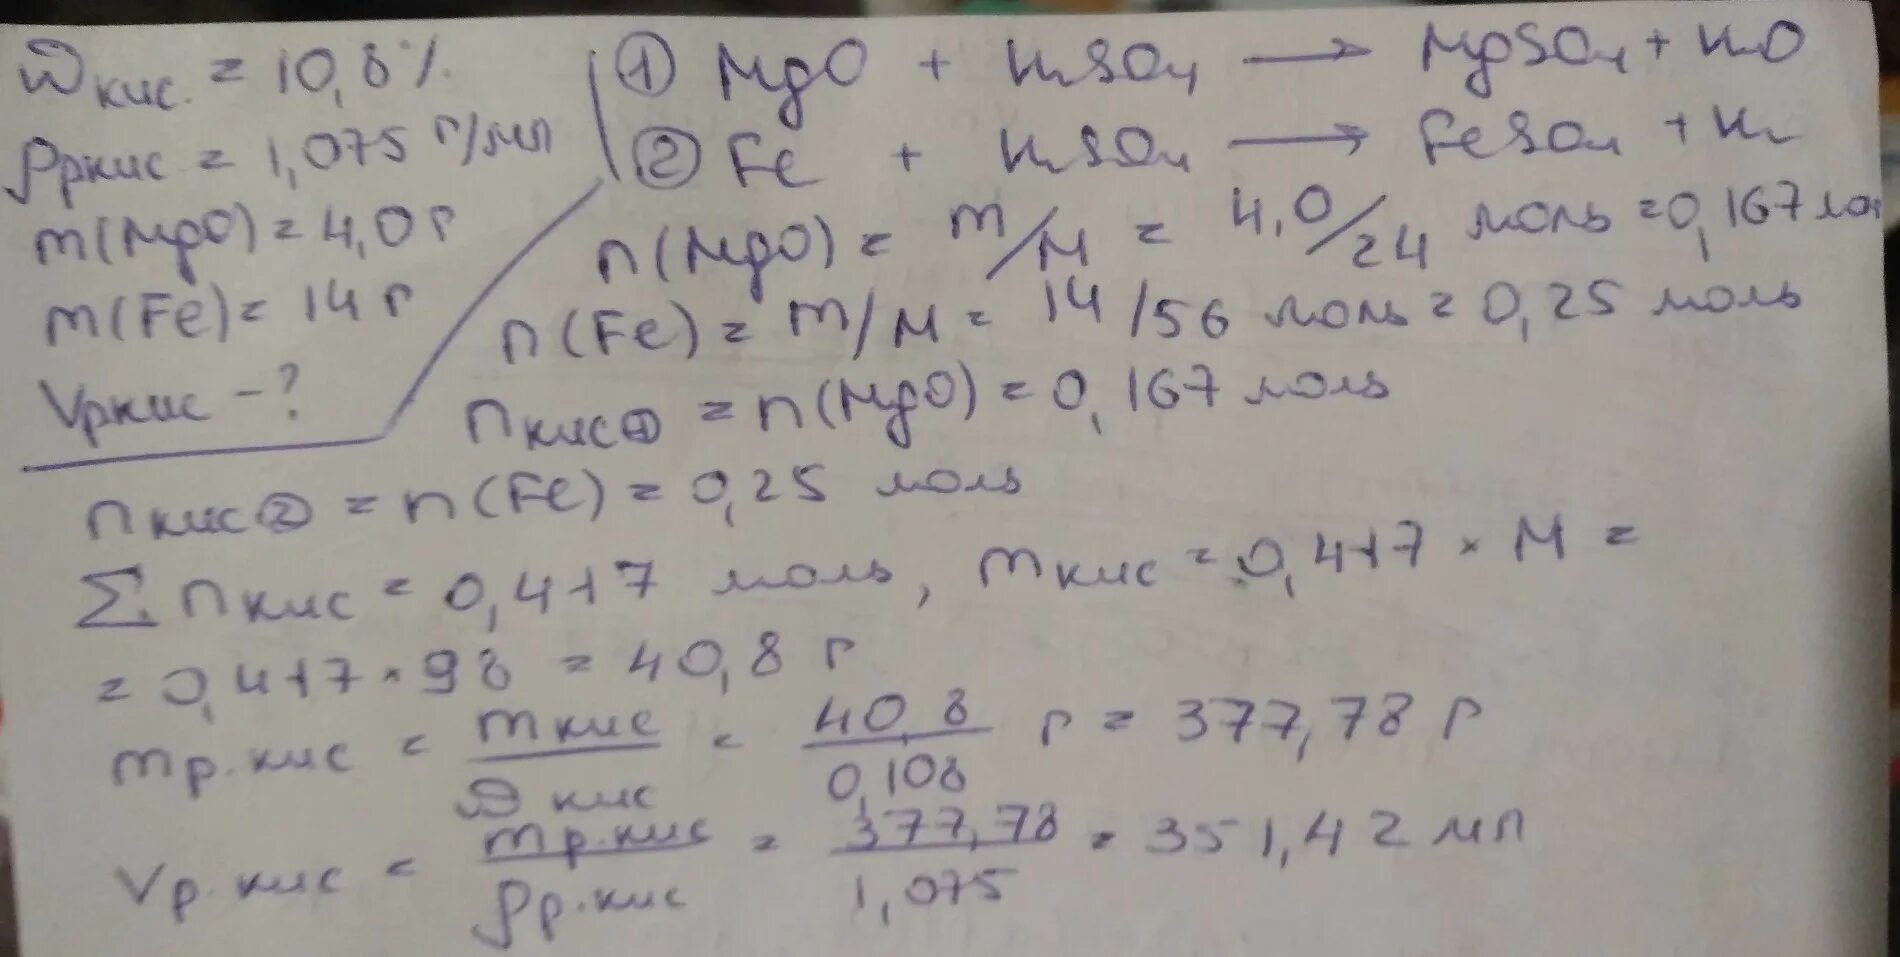 ω кис. = 10,8%
ρр кис = 1,075 г/мл
m(MgO) = 4,0 г
m(Fe) = 14 г
Vр кис - ?
① MgO + H₂SO₄ → MgSO₄ + H₂O
② Fe + H₂SO₄ → FeSO₄ + H₂
n(MgO) = m/M = 4,0/24 моль = 0,167 мол
n(Fe) = m/M = 14/56 моль = 0,25 моль
n кис ① = n(MgO) = 0,167 моль
n кис ② = n(Fe) = 0,25 моль
Σ n кис = 0,417 моль, m кис = 0,417 × M =
= 0,417 × 98 = 40,8 г
mр.кис = m кис / ω кис = 40,8 / 0,108 г = 377,78 г
Vр.кис = mр.кис / ρр.кис = 377,78 / 1,075 = 351,42 мл